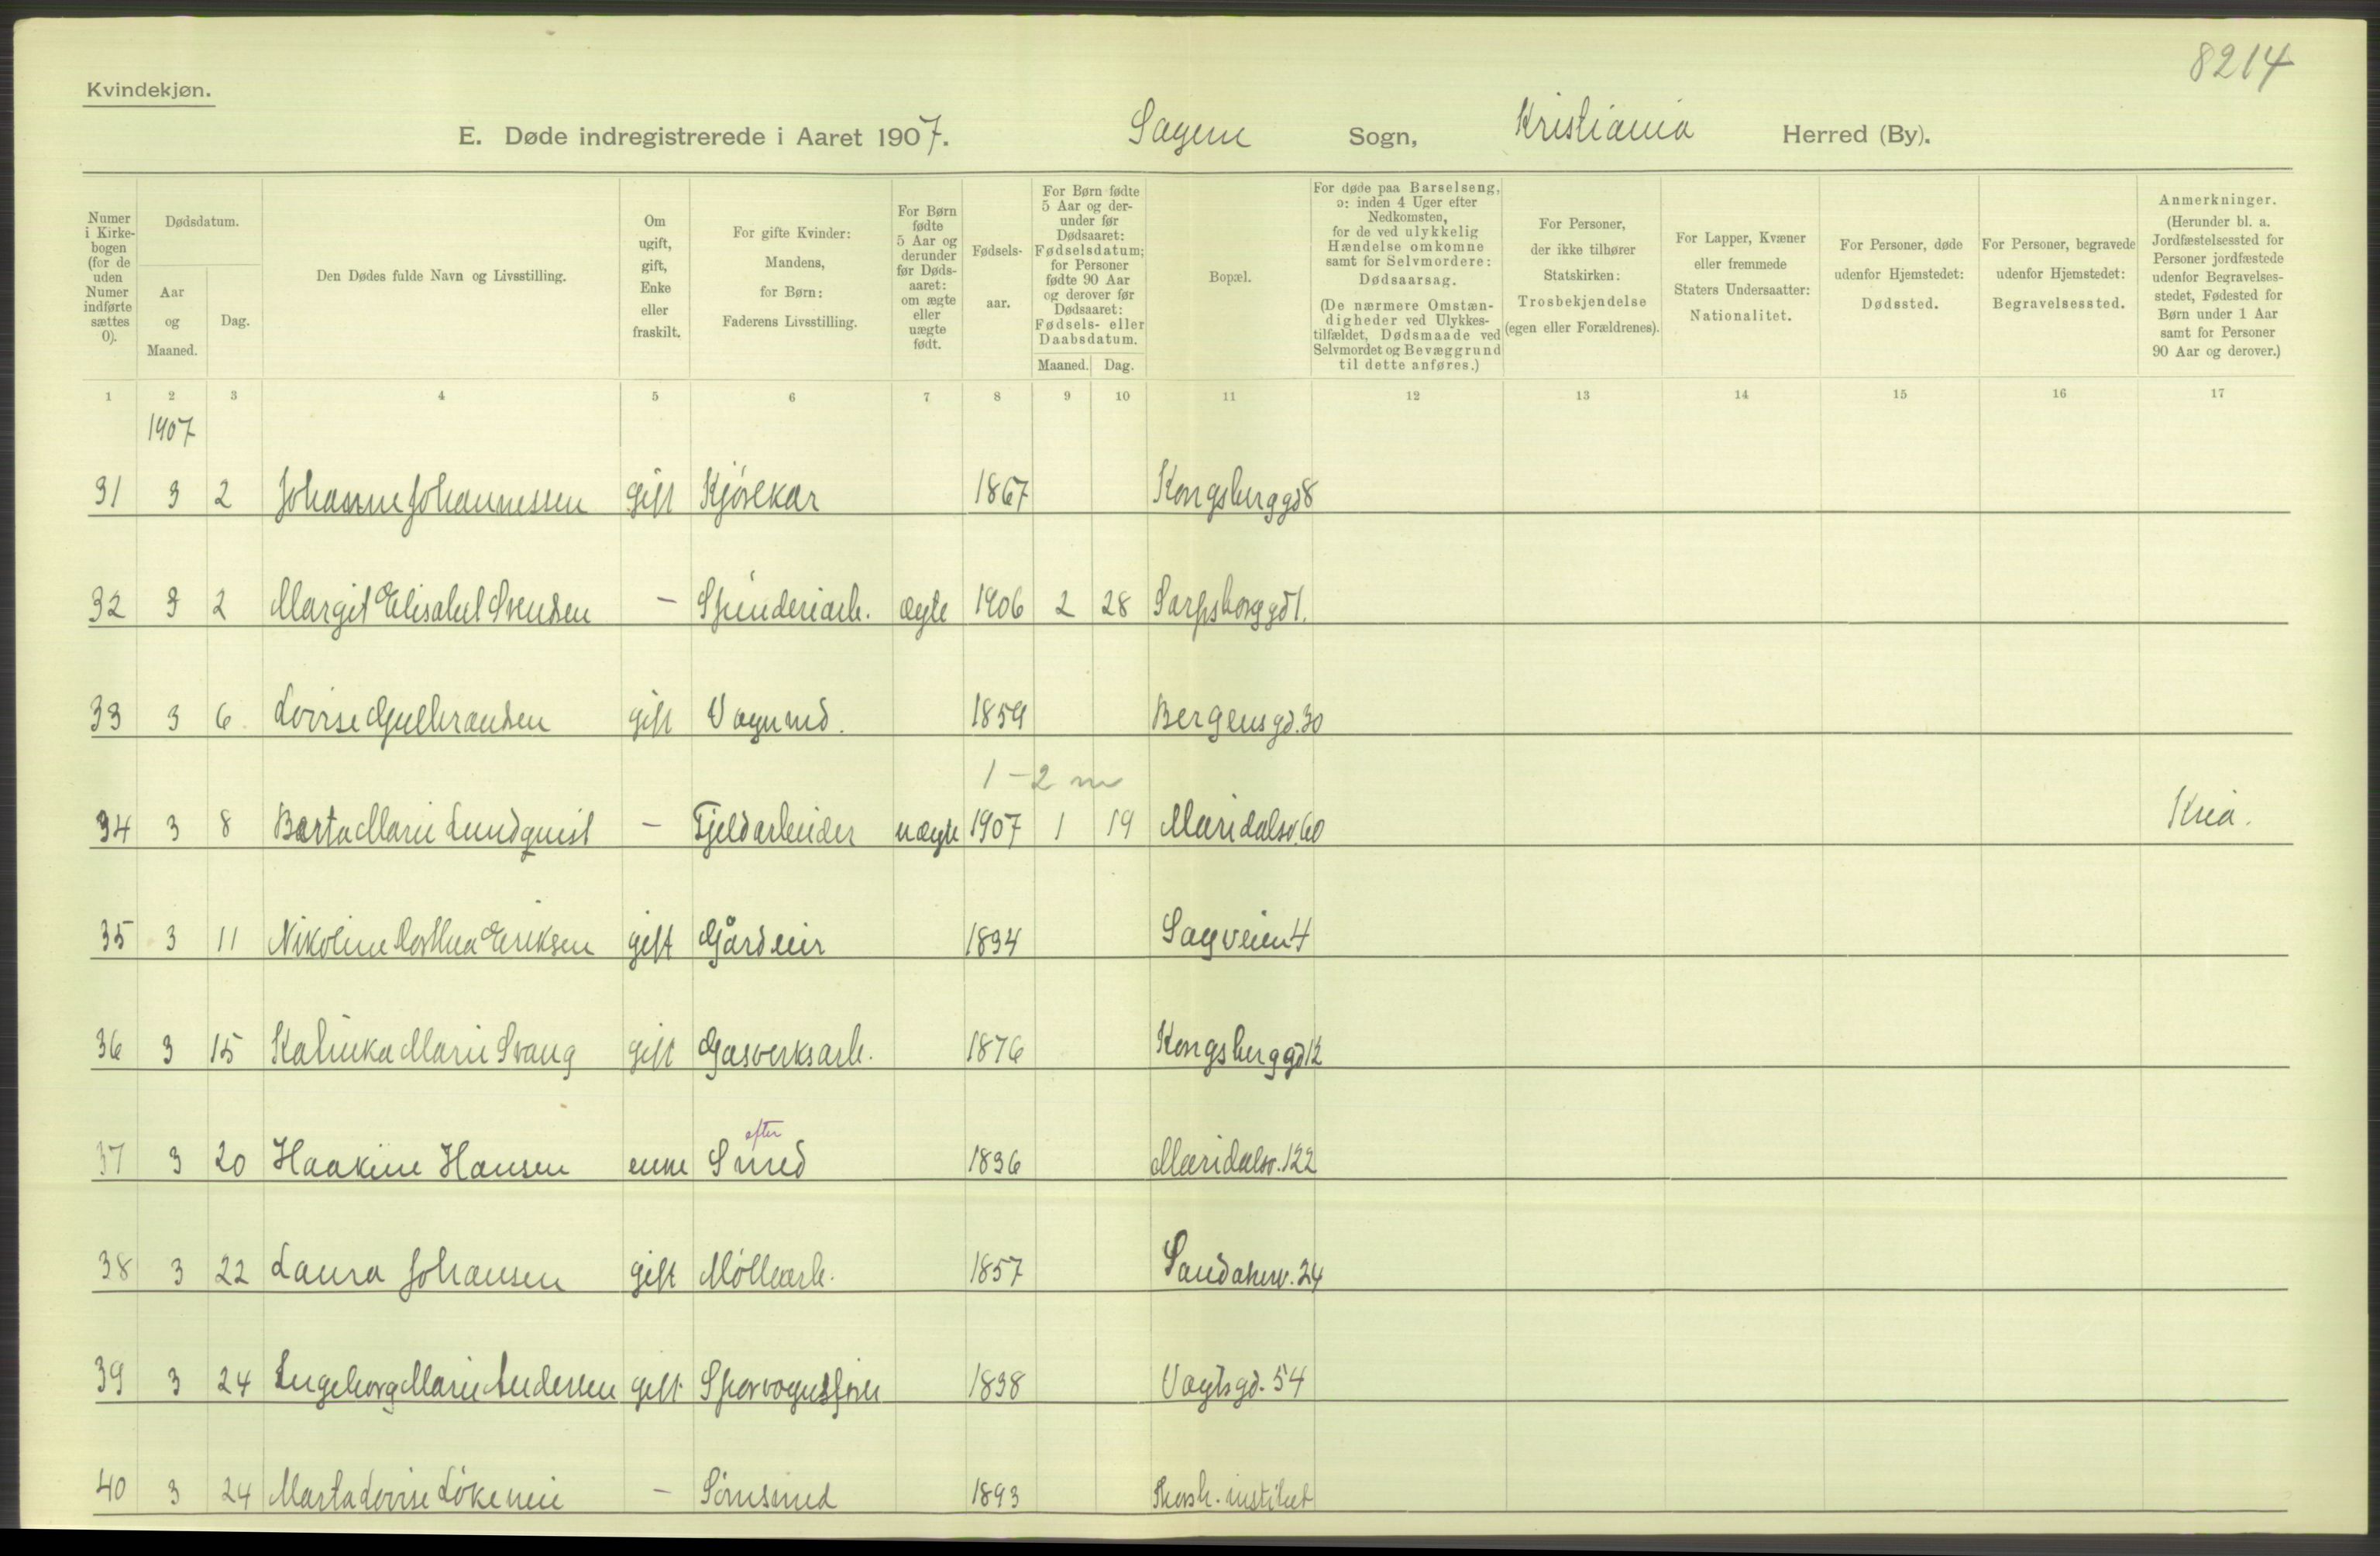 8214
Kvindekjøn.
E. Døde indregistrerede i Aaret 1907. Sagene Sogn, Kristiania Herred (By).
Numer i Kirkebogen (for de uden Numer indførte sættes 0).
Dødsdatum.
Aar og Maaned.
Dag.
Den Dødes fulde Navn og Livsstilling.
Om ugift, gift, Enke eller fraskilt.
For gifte Kvinder: Mandens, for Børn: Faderens Livsstilling.
For Børn fødte 5 Aar og derunder før Dødsaaret: om ægte eller uægte født.
Fødselsaar.
For Børn fødte 5 Aar og derunder før Dødsaaret: Fødselsdatum; for Personer fødte 90 Aar og derover før Dødsaaret: Fødsels- eller Daabsdatum.
Maaned. Dag.
Bopæl.
For døde paa Barselseng, ɔ: inden 4 Uger efter Nedkomsten, for de ved ulykkelig Hændelse omkomne samt for Selvmordere: Dødsaarsag.
(De nærmere Omstændigheder ved Ulykkestilfældet, Dødsmaade ved Selvmordet og Bevæggrund til dette anføres.)
For Personer, der ikke tilhører Statskirken: Trosbekjendelse (egen eller Forældrenes).
For Lapper, Kvæner eller fremmede Staters Undersaatter: Nationalitet.
For Personer, døde udenfor Hjemstedet: Dødssted.
For Personer, begravede udenfor Hjemstedet: Begravelsessted.
Anmerkninger. (Herunder bl. a. Jordfæstelsessted for Personer jordfæstede udenfor Begravelsesstedet, Fødested for Børn under 1 Aar samt for Personer 90 Aar og derover.)
1 2 3 4 5 6 7 8 9 10 11 12 13 14 15 16 17
1907
31 3 2 Johanne Johannessen gift Kjørekar 1867 Kongsberggd 8
32 3 2 Margit Elisabet Svendsen - Spinderiarb. ægte 1906 2 28 Sarpsborggd 1.
33 3 6 Lovise Gulbrandsen gift Vognmd. 1859 Bergensgd. 30
1 - 2 m
34 3 8 Berta Marie Lundquist - Fjeldarbeider uægte 1907 1 19 Maridalsv. 60 Kria.
35 3 11 Nikoline Dorthea Eriksen gift Gårdeier 1834 Sagveien 4
36 3 15 Katinka Marie Svang gift Gasverksarb. 1876 Kongsberggd 12
efter
37 3 20 Haakine Hansen enke Smed 1836 Maridalsv. 122
38 3 22 Laura Johansen gift Møllearb. 1857 Sandakerv. 24
39 3 24 Ingeborg Marie Andersen gift Sporvognsfører 1838 Vogtsgd. 54
40 3 24 Marta Lovise Løkeneie - 1893 institut